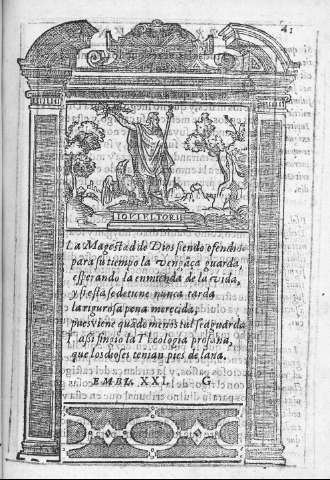 41
IOVI VLTORI
La Magestad de Dios siendo ofendida
para su tiempo la vengãça guarda,
esperando la enmienda de la vida,
y si esta se detune nunca tarda
la rigurosa pena merecida;
pues viene quãdo menos tal se aguarda
Y assi fingio la Theologia profana,
que los dioses tenian pies de lana.
EMBL. XXI. G